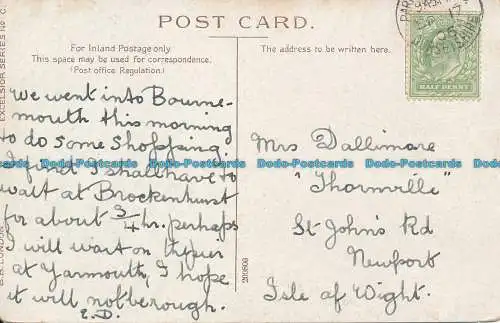 POST CARD.
EXCELSIOR SERIES No C.
B.B. LONDON
For Inland Postage only
This space may be used for correspondence.
(Post office Regulation.)
The address to be written here.
HALF PENNY
we went into Bourne-
mouth this morning
to do some Shopping.
I find I shall have to
wait at Brockenhurst
for about 3/4 hr. perhaps
I will wait on the pier
at Yarmouth, I hope
it will not be rough.
E.D.
Mrs Dallimore
"Thornville"
St John's Rd
Newport
Isle of Wight.
Dodo-Postcards Dodo-Postcards Dodo-Postcards Dodo-Postcards